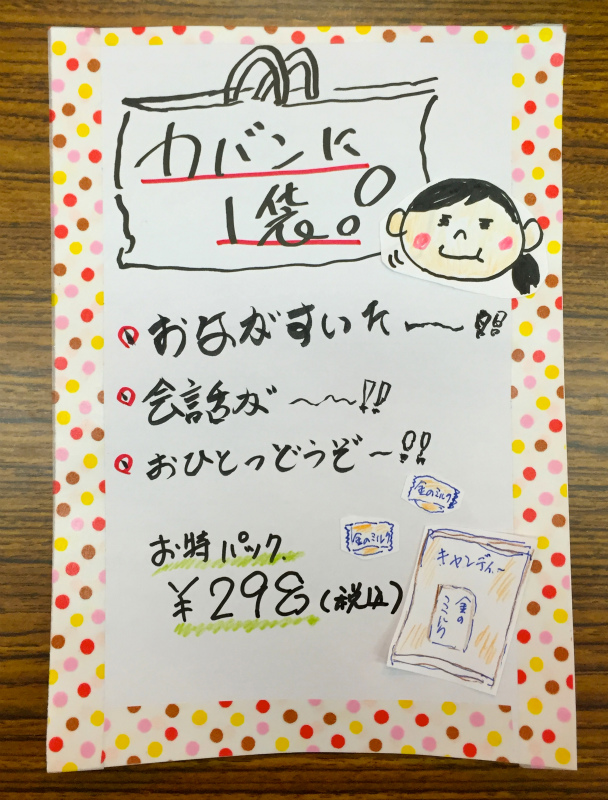 カバンに
1袋。
おなかがすいた〜〜!!
会話が〜〜!!
おひとつどうぞ〜!!
金のミルク
金のミルク
お特パック
¥298(税込)
キャンディー
金の
ミルク